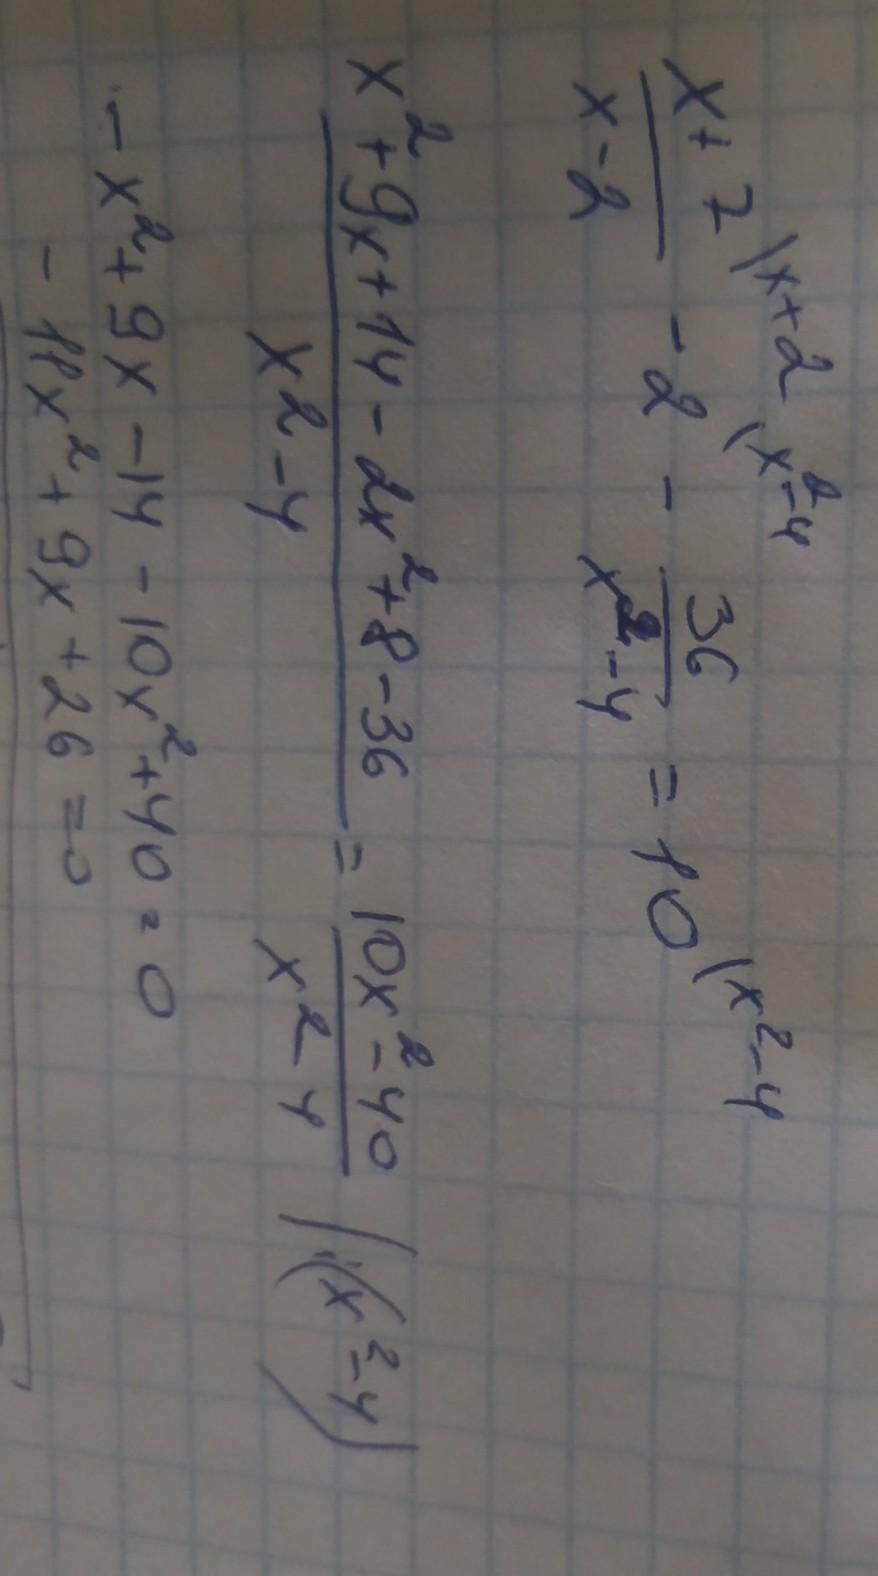 x+7\x+2 / x-2 - 2\x²-4 - 36 / x²-4 = 10\x²-4
x²+9x+14-2x²+8-36 / x²-4 = 10x²-40 / x²-4 | (x²-4)
-x²+9x-14-10x²+40=0
-11x²+9x+26=0